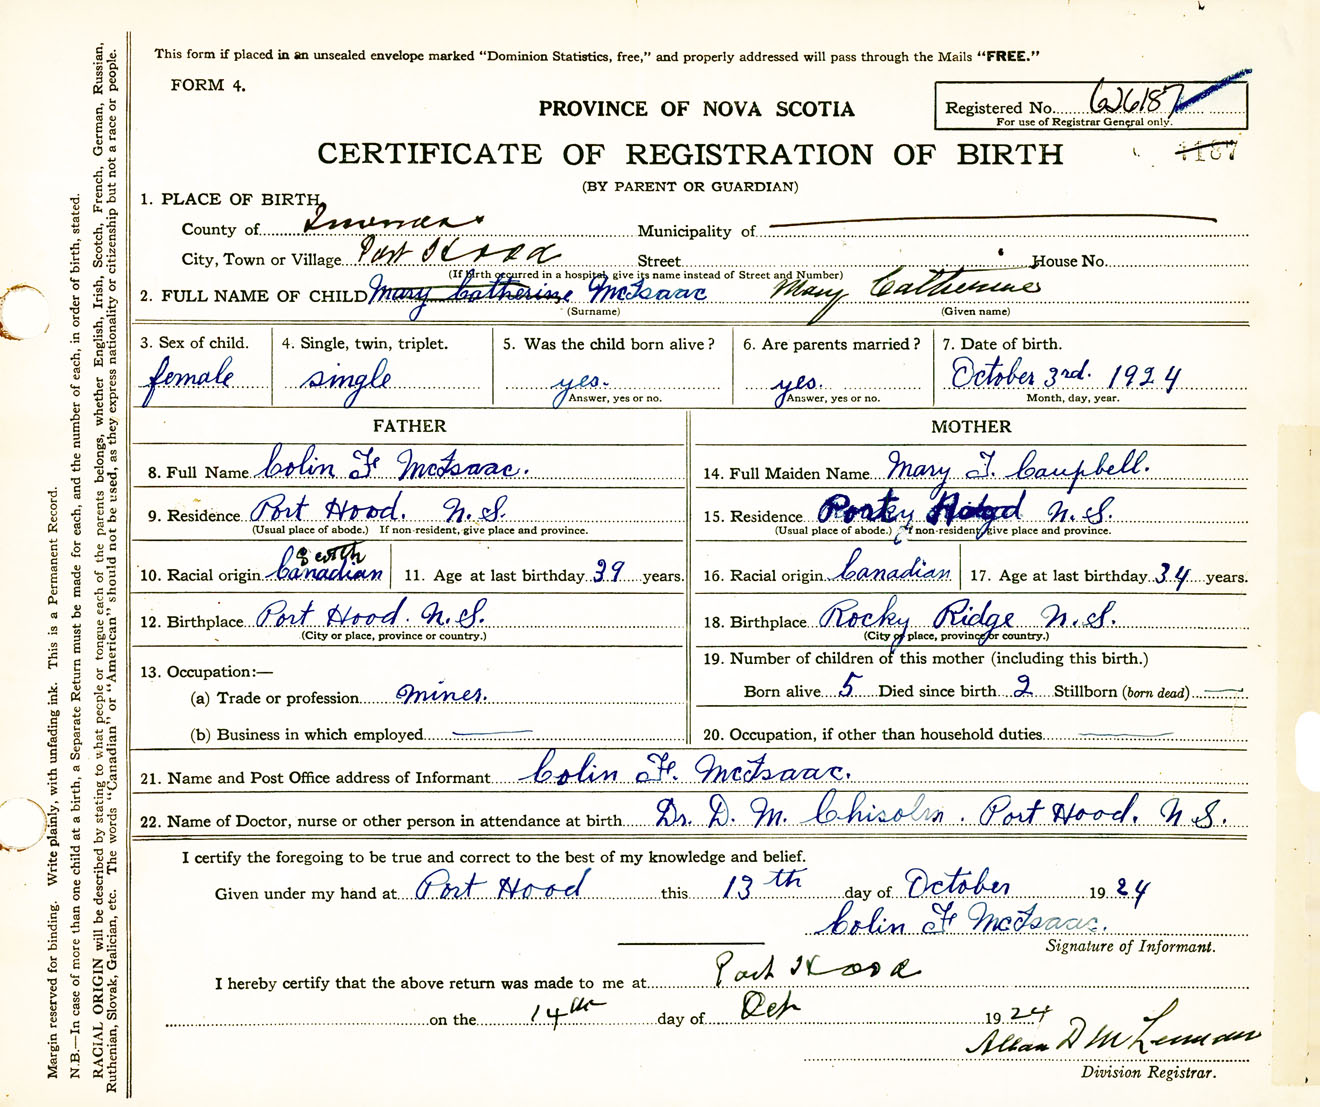 This form if placed in an unsealed envelope marked "Dominion Statistics, free," and properly addressed will pass through the Mails "FREE."
FORM 4.
PROVINCE OF NOVA SCOTIA
Registered No. 626187
For use of Registrar General only.
CERTIFICATE OF REGISTRATION OF BIRTH
4187
(BY PARENT OR GUARDIAN)
1. PLACE OF BIRTH
County of Inverness Municipality of
City, Town or Village Port Hood Street House No.
(If birth occurred in a hospital, give its name instead of Street and Number)
2. FULL NAME OF CHILD Mary Catherine McIsaac Mary Catherine
(Surname) (Given name)
3. Sex of child. 4. Single, twin, triplet. 5. Was the child born alive? 6. Are parents married? 7. Date of birth.
female single yes. yes. October 3rd. 1924
Answer, yes or no. Answer, yes or no. Month, day, year.
FATHER MOTHER
8. Full Name Colin F McIsaac. 14. Full Maiden Name Mary J. Campbell.
9. Residence Port Hood. N.S. 15. Residence Port Hood N.S.
(Usual place of abode.) If non-resident, give place and province. (Usual place of abode.) If non-resident, give place and province.
Scotch
10. Racial origin Canadian 11. Age at last birthday 39 years. 16. Racial origin Canadian 17. Age at last birthday 34 years.
12. Birthplace Port Hood. N.S. 18. Birthplace Rocky Ridge N.S.
(City or place, province or country.) (City or place, province or country.)
13. Occupation:— 19. Number of children of this mother (including this birth.)
(a) Trade or profession miner. Born alive 5 Died since birth 2 Stillborn (born dead)
(b) Business in which employed 20. Occupation, if other than household duties
21. Name and Post Office address of Informant Colin F. McIsaac.
22. Name of Doctor, nurse or other person in attendance at birth Dr. D. M. Chisolm. Port Hood. N.S.
I certify the foregoing to be true and correct to the best of my knowledge and belief.
Given under my hand at Port Hood this 13th day of October 1924
Colin F McIsaac.
Signature of Informant.
I hereby certify that the above return was made to me at Port Hood
on the 14th day of Oct 1924
Allan D
Division Registrar.
Margin reserved for binding. Write plainly, with unfading ink. This is a Permanent Record.
N.B.—In case of more than one child at a birth, a Separate Return must be made for each, and the number of each, in order of birth, stated.
RACIAL ORIGIN will be described by stating to what people or tongue each of the parents belongs, whether English, Irish, Scotch, French, German, Russian,
Ruthenian, Slovak, Galician, etc. The words "Canadian" or "American" should not be used, as they express nationality or citizenship but not a race or people.